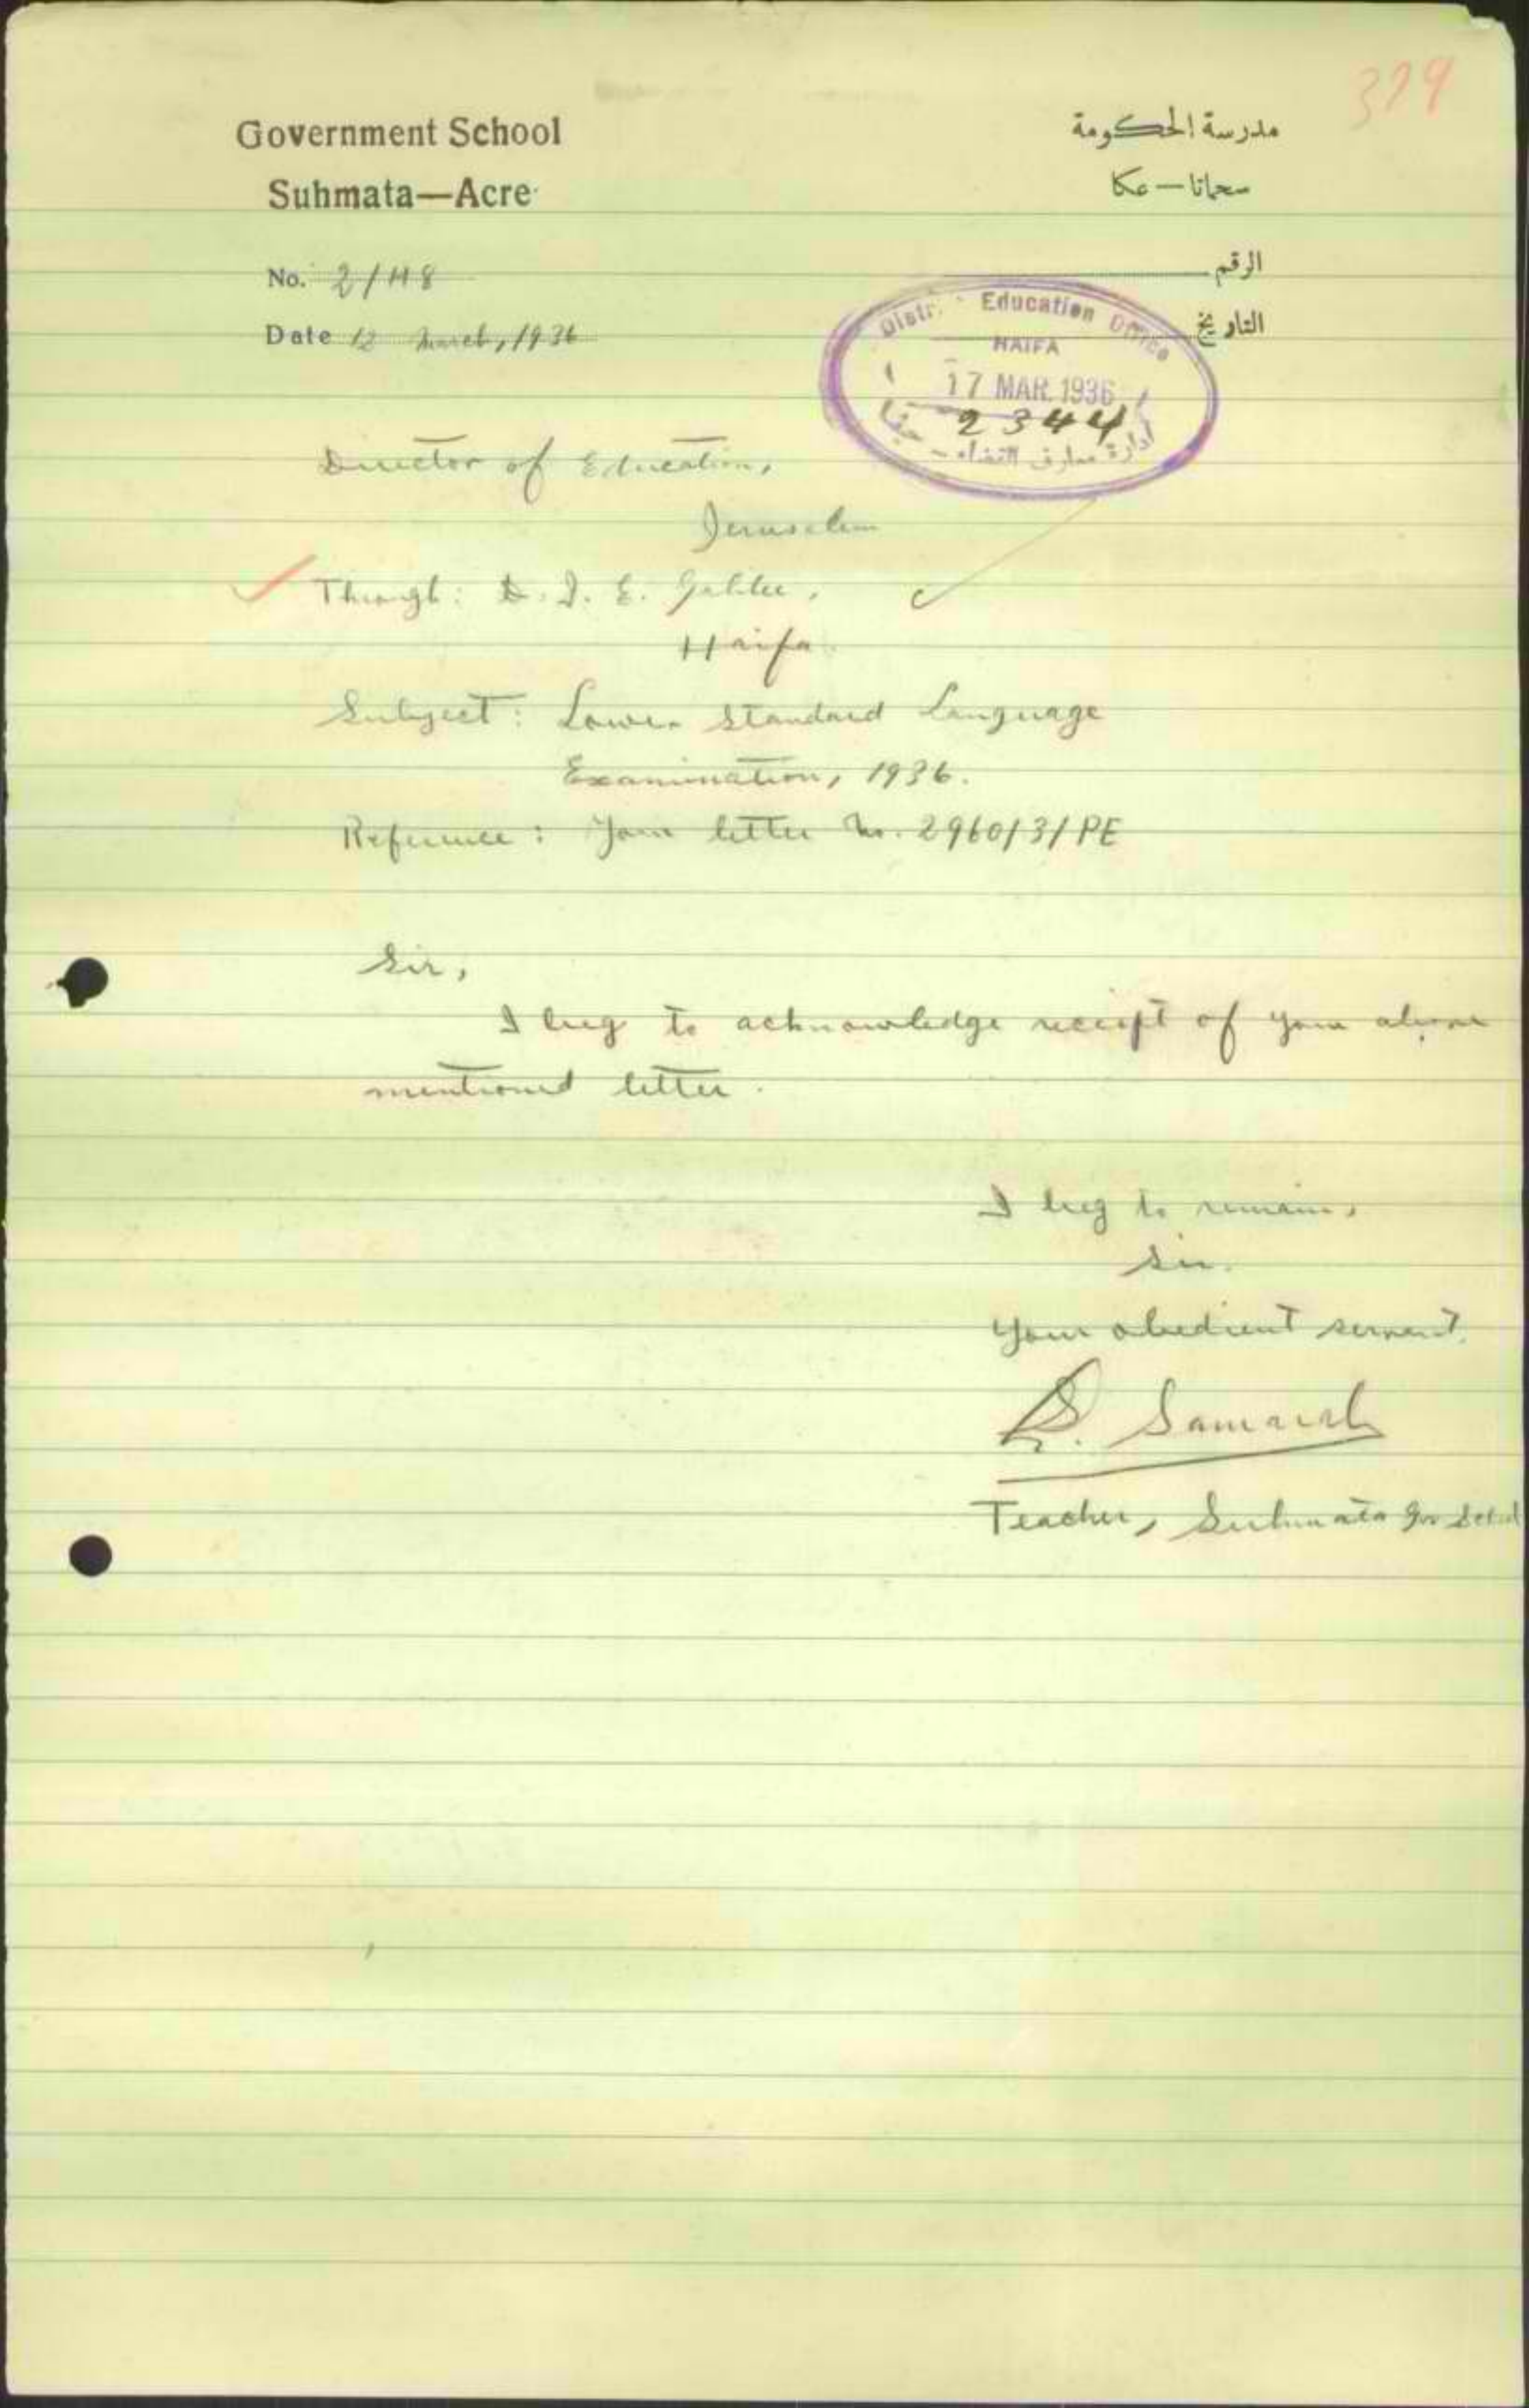 379
Government School
مدرسة الحكومة
Suhmata—Acre
سحماتا — عكا
No. 2/118
الرقم
Date 12 March, 1936
التاريخ
Distr. Education Office
HAIFA
17 MAR. 1936
2344
ادارة معارف القضاء - حيفا
Director of Education,
Jerusalem
Through: D. I. E. Galilee,
Haifa.
Subject: Lower Standard Language
Examination, 1936.
Reference: Your letter No. 2960/3/PE
Sir,
I beg to acknowledge receipt of your above
mentioned letter.
I beg to remain,
Sir.
Your obedient servant.
S. Samarah
Teacher, Suhmata Gov School